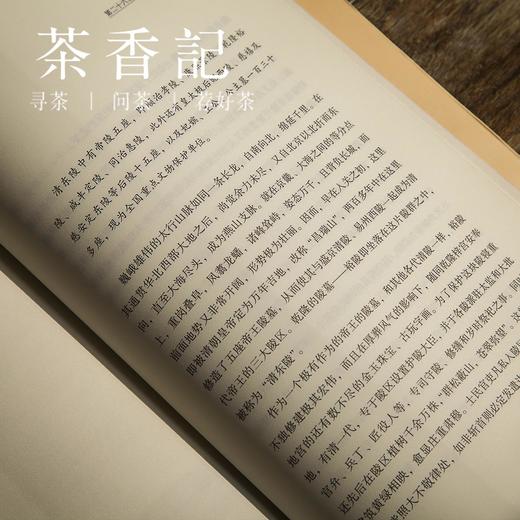 第二十六
茶香記
寻茶 | 问茶 | 荐好茶
清东陵中有帝陵五座，治孝陵、乾隆裕
陵、咸丰定陵、同治惠陵，此外还有皇太后西陵、慈禧及
慈安定东陵等后陵十五座，以及妃嫔、墓一百三十
多座，现为全国重点文物保护单位。
巍峨雄伟的太行山脉如同一条长龙，自南向北，绵延千里。在
其通贯华北西部大地之后，尚觉余力未尽，又自北京以北折而东
向，直至大海尽头，成为燕山支脉。就在京畿、大海之间的等分点
上，重岗叠阜，凤翥龙蟠，诸峰耸峙，姿态万千，且背负长城，而
指面地势又非常开阔，形势极为壮丽。因而，早在入关之初，这里
即被清朝皇帝定为万年吉地，改称“昌瑞山”，两百多年中在这里
修造了五座帝王陵墓，从而使其与盛京清陵、易州西陵一起成为清
代帝王的三大陵区。乾隆的陵墓——裕陵即坐落在这片陵群之中，
被称为“清东陵”。
作为一个极有作为的帝王的陵墓，和其他各代清陵一样，裕陵
不独修建极其宏伟，而且在厚葬风气的影响下，随同乾隆梓宫安奉
地宫的还有数不尽的金玉珠宝、古玩字画。为了保护这块陵寝重
地，有清一代，专于陵区设置护陵大臣，并于各陵派驻太监和大批
官弁、兵丁、匠役人等，专司守陵、修缮和岁时祭祀之事。同
还先后在陵区植树千余万株，“群松蔽山，苍翠弥望”。
筑黄绿相映，愈显庄重肃穆。士民官吏凡私入陵
照大不敬律处，如非斩首则必定发遣